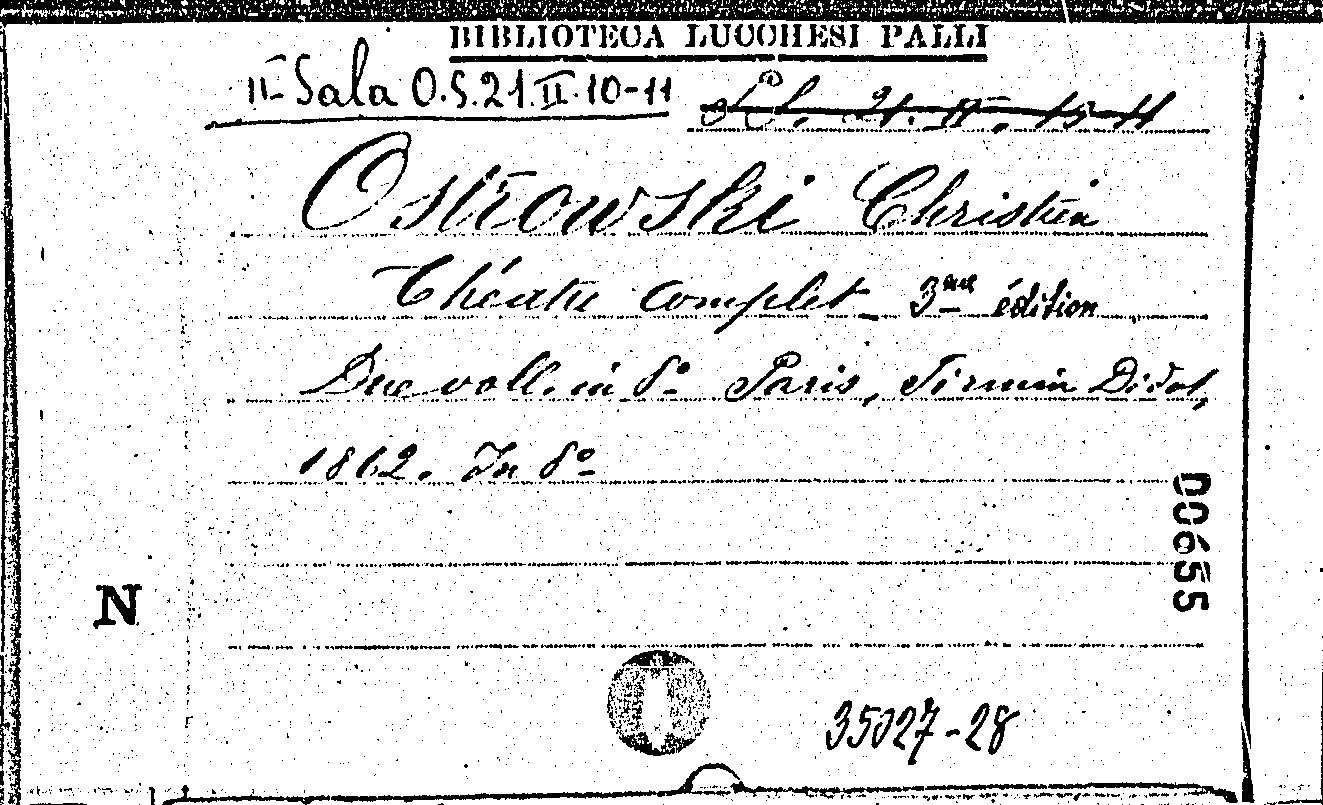 BIBLIOTECA LUCCHESI PALLI
II Sala O.S.21.II.10-11
21. II. 15-11
Ostrowski Christien
Théatre complet_ 3me édition
Due voll. in 8º Paris, Firmin Didot,
1862. In 8º
00655
N
35027-28